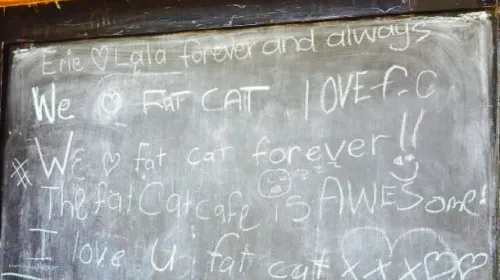 Erie ♡ Lala forever and always
We ♡ FAT CAT I LOVE f.C
# WE ♡ fat cat forever!!
The fat Cat cafe is AWESome!
I love U fat cat x x x ♡♡